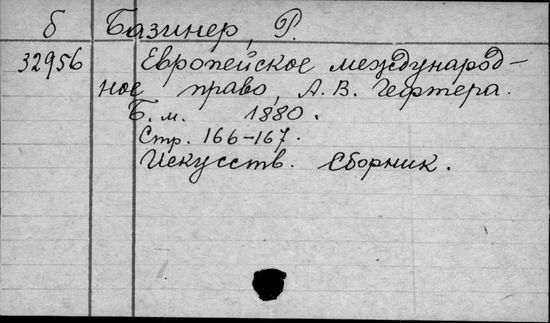 б Базинер, Р.
32956 Европейское международ-
ное право, А. В. Гефтера.
Б. м. 1880.
Стр. 166-167.
Искусств. сборник.